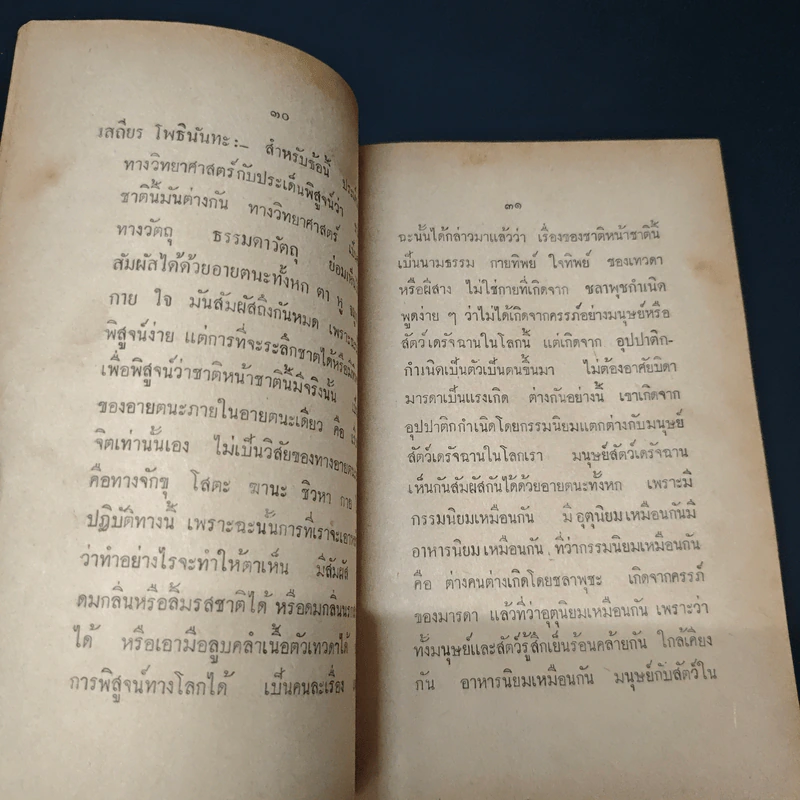 ๓๐
เสถียร โพธินันทะ:— สำหรับข้อนี้
ทางวิทยาศาสตร์กับประเด็นพิสูจน์ว่า
ชาตินี้มันต่างกัน ทางวิทยาศาสตร์
ทางวัตถุ ธรรมดาวัตถุ
สัมผัสได้ด้วยอายตนะทั้งหก ตา หู
กาย ใจ มันสัมผัสถึงกันหมด
พิสูจน์ง่าย แต่การที่จะระลึกชาติได้
เพื่อพิสูจน์ว่าชาติหน้าชาตินี้มีจริงนั้น
ของอายตนะภายในอายตนะเดียว คือ
จิตเท่านั้นเอง ไม่เป็นวิสัยของทาง
คือทางจักขุ โสตะ ฆานะ ชิวหา กาย
ปฏิบัติทางนี้ เพราะฉะนั้นการที่เราจะ
ว่าทำอย่างไรจะทำให้ตาเห็น มีสัมผัส
ดมกลิ่นหรือลิ้มรสชาติได้ หรือดมกลิ่น
ได้ หรือเอามือลูบคลำเนื้อตัวเทวดาได้
การพิสูจน์ทางโลกได้ เป็นคนละเรื่อง
๓๑
ฉะนั้นได้กล่าวมาแล้วว่า เรื่องของชาติหน้าชาตินี้
เป็นนามธรรม กายทิพย์ ใจทิพย์ ของเทวดา
หรือผีสาง ไม่ใช่กายที่เกิดจาก ชลาพุชกำเนิด
พูดง่าย ๆ ว่าไม่ได้เกิดจากครรภ์อย่างมนุษย์หรือ
สัตว์เดรัจฉานในโลกนี้ แต่เกิดจาก อุปปาติก-
กำเนิดเป็นตัวเป็นตนขึ้นมา ไม่ต้องอาศัยบิดา
มารดาเป็นแรงเกิด ต่างกันอย่างนี้ เขาเกิดจาก
อุปปาติกกำเนิดโดยกรรมนิยมแตกต่างกับมนุษย์
สัตว์เดรัจฉานในโลกเรา มนุษย์สัตว์เดรัจฉาน
เห็นกันสัมผัสกันได้ด้วยอายตนะทั้งหก เพราะมี
กรรมนิยมเหมือนกัน มีอุตุนิยมเหมือนกันมี
อาหารนิยมเหมือนกัน ที่ว่ากรรมนิยมเหมือนกัน
คือ ต่างคนต่างเกิดโดยชลาพุชะ เกิดจากครรภ์
ของมารดา แล้วที่ว่าอุตุนิยมเหมือนกัน เพราะว่า
ทั้งมนุษย์และสัตว์รู้สึกเย็นร้อนคล้ายกัน ใกล้เคียง
กัน อาหารนิยมเหมือนกัน มนุษย์กับสัตว์ใน